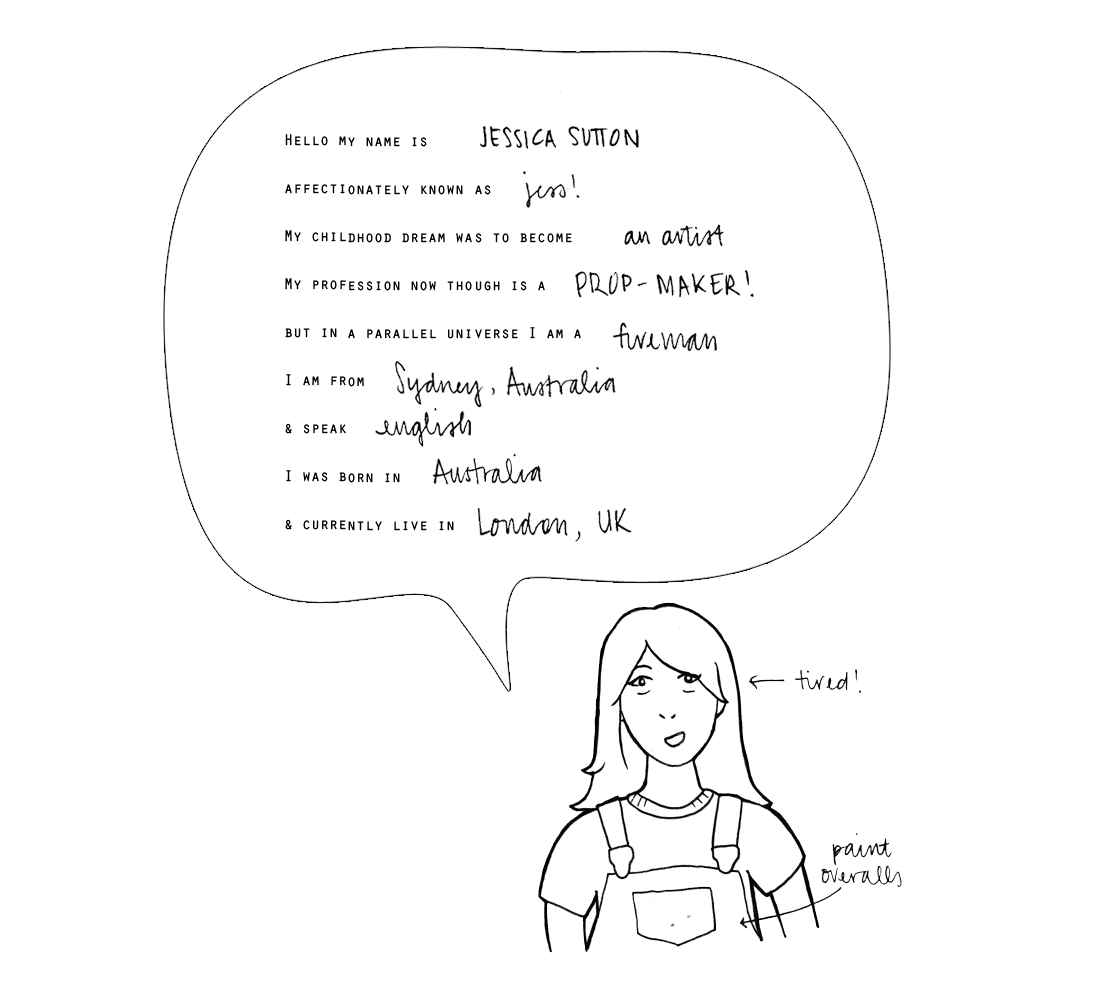 HELLO MY NAME IS JESSICA SUTTON
AFFECTIONATELY KNOWN AS jess!
MY CHILDHOOD DREAM WAS TO BECOME an artist
MY PROFESSION NOW THOUGH IS A PROP-MAKER!
BUT IN A PARALLEL UNIVERSE I AM A fireman
I AM FROM Sydney, Australia
& SPEAK english
I WAS BORN IN Australia
& CURRENTLY LIVE IN London, UK
tired!
paint
overalls